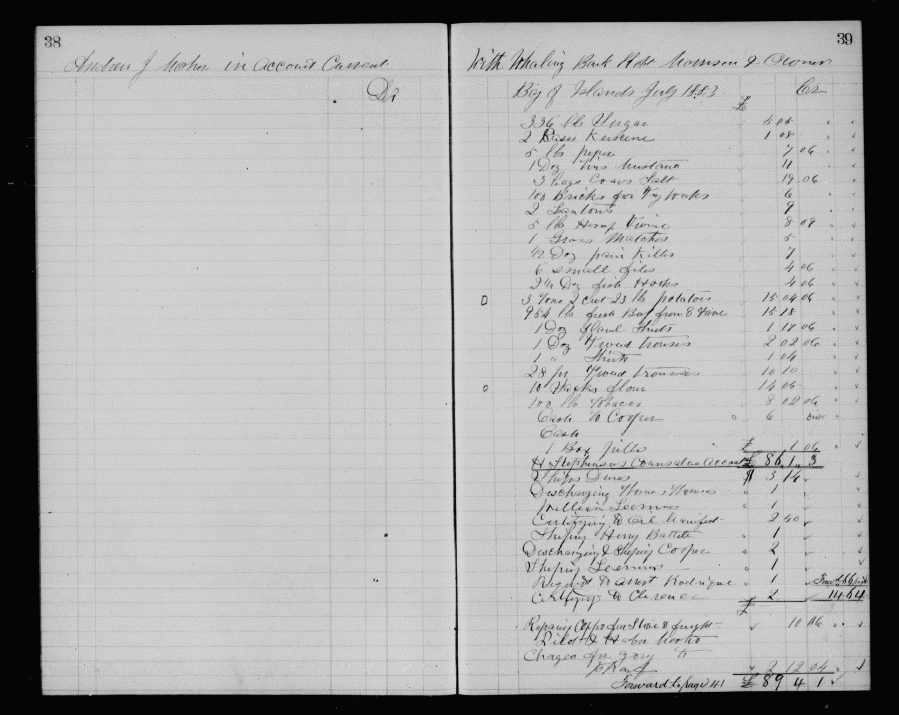 38
Andrew J in Account Current
Dr
39
With Whaling Bark Robt Morrison & Owner
Bay of Islands July 1883 Cr
£
336 lb Sugar 5 05
2 Kerosene 1 08
5 lbs 7 06
1 Doz Tins Mustard 11
3 bags Coars Salt 19 06
100 Bricks for Try Works 6
2 9
5 lb Hemp Twine 8 09
1 Gross Matches 5
1/2 Doz pain Killer 7
6 small files 4 06
2 1/2 Doz fish Hooks 4 06
3 Tons 2 Cwt 23 lb potatoes 15 04 06
954 lb fresh Beef from 8 15 18
1 Doz Shirts 1 17 06
1 Doz Tweed trouses 2 02 06
1 " Shirts 1 04
28 pr Tweed trouses 10 10
10 Sacks flour 14 05
100 lb Tobacco 8 02 06
Cash to Cooper 6
Cash
1 Box pills £ 1 06
H Stephenson Counsalar Account £ 86 1 3
Ships Dues $ 3 14
Discharging Thomas 1
William 1
Certifying to Oil Manifest 2 50
Shiping Henry 1
Discharging & Shiping Cooper 2
Shiping 1
Request to arrest Rodrigue 1
Certifying to Clarence 2 14 64
£
Repairing for Stove & freight 10 06
Pilot &
Charges for
2 12 04
Forward to page 41 £ 89 4 1